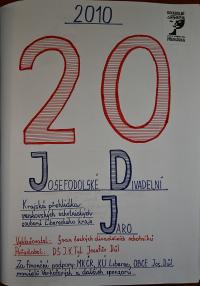 2010
20
JOSEFODOLSKÉ DIVADELNÍ
JARO
Krajská přehlídka
venkovských ochotnických
souborů Libereckého kraje
Vyhlašovatel: Svaz českých divadelních ochotníků
Pořadatel: DS J.K. Tyl Josefův Důl
Za finanční podpory MKČR, KÚ Liberec, OBCE Jos. Důl
manželů Verhotových a dalších sponzorů